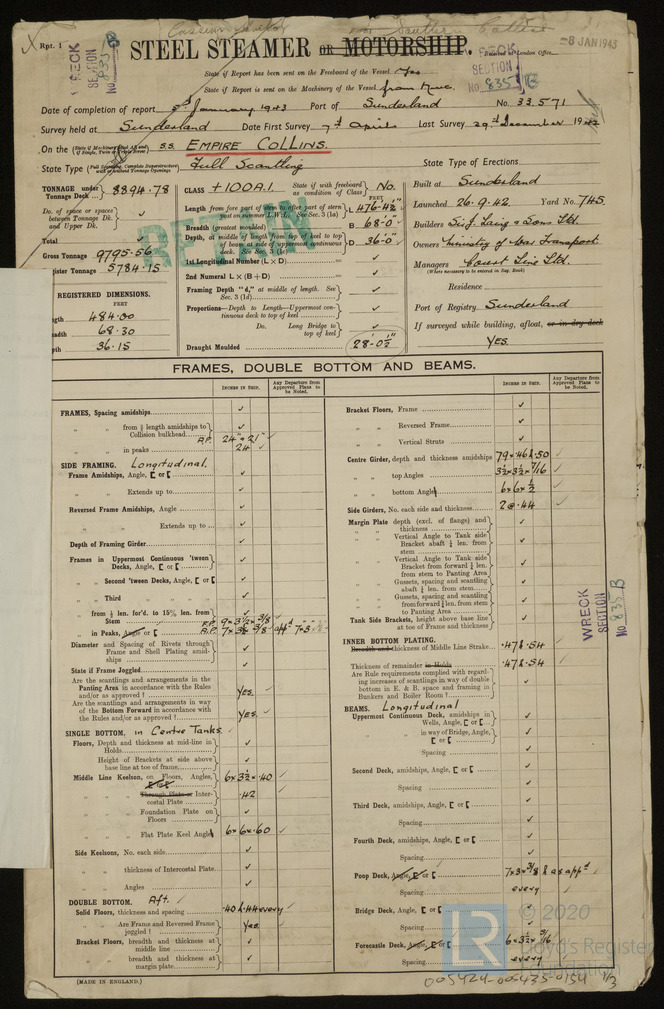 Rpt. 1
WRECK SECTION No 835 B
STEEL STEAMER OR MOTORSHIP.
Received at London Office
-8 JAN 1943
WRECK SECTION No 835 B
State if Report has been sent on the Freeboard of the Vessel Yes
State if Report is sent on the Machinery of the Vessel
Date of completion of report 5th January 1943 Port of Sunderland No. 33.571
Survey held at Sunderland Date First Survey 7th April Last Survey 29th December 1942
On the S.S. EMPIRE COLLINS.
State Type Full Scantling
State Type of Erections
TONNAGE under Tonnage Deck 8894.78
Do. of space or spaces between Tonnage Dk. and Upper Dk.
Total
Gross Tonnage 9795.56
ister Tonnage 5784.15
REGISTERED DIMENSIONS.
FEET
484.00
68.30
36.15
CLASS +100A.1. State if with freeboard as condition of Class No.
FEET
Length from fore part of stem to after part of stern post on summer L.W.L. See Sec. 3 (1a) L 476-4½"
Breadth (greatest moulded) B 68-0"
Depth, at middle of length from top of keel to top of beam at side of uppermost continuous deck. See Sec. 3 (1c) D 36-0"
1st Longitudinal Number (L × D)
2nd Numeral L × (B + D)
Framing Depth "d," at middle of length. See Sec. 3 (1d)
Proportions—Depth to Length—Uppermost continuous deck to top of keel
Do. Long Bridge to top of keel
Draught Moulded 28'-0½"
RETAIN
Built at Sunderland
Launched 26.9.42 Yard No 745
Builders Sir J. Laing & Sons Ltd.
Owners Ministry of War Transport
Managers Coast Line Ltd.
(Where necessary to be entered in Reg. Book)
Residence
Port of Registry Sunderland
If surveyed while building, afloat, or in dry dock
YES.
FRAMES, DOUBLE BOTTOM AND BEAMS.
INCHES IN SHIP.
Any Departure from Approved Plans to be Noted.
FRAMES, Spacing amidships
" " from ⅜ length amidships to Collision bulkhead A.P. 24" & 21"
" " in peaks 24
SIDE FRAMING. Longitudinal.
Frame Amidships, Angle, [ or [
" " Extends up to
Reversed Frame Amidships, Angle
" " Extends up to
Depth of Framing Girder
Frames in Uppermost Continuous 'tween Decks, Angle, [ or [
" Second 'tween Decks, Angle, [ or [
" Third " "
" from ⅛ len. for'd. to 15% len. from Stem F.P. 9 × 3½ × 3/8
" in Peaks, Angle or [ A.P. 7 × 3½ × 3/8 appd 7×3
Diameter and Spacing of Rivets through Frame and Shell Plating amidships
State if Frame Joggled
Are the scantlings and arrangements in the Panting Area in accordance with the Rules and/or as approved ? YES.
Are the scantlings and arrangements in way of the Bottom Forward in accordance with the Rules and/or as approved ? YES.
SINGLE BOTTOM. in Centre Tanks.
Floors, Depth and thickness at mid-line in Holds
Height of Brackets at side above base line at toe of frame
Middle Line Keelson, on Floors, Angles, 6×3½×.40
" " Through Plate or Intercostal Plate .42
" " Foundation Plate on Floors
" " Flat Plate Keel Angle 6×6×.60
Side Keelsons, No. each side
" " thickness of Intercostal Plate
" " Angles
DOUBLE BOTTOM. Aft.
Solid Floors, thickness and spacing .40 & .44 every
" " Are Frame and Reversed Frame joggled ? Yes.
Bracket Floors, breadth and thickness at middle line
" " breadth and thickness at margin plate
(MADE IN ENGLAND.)
INCHES IN SHIP.
Any Departure from Approved Plans to be Noted.
Bracket Floors, Frame
" " Reversed Frame
" " Vertical Struts
Centre Girder, depth and thickness amidships 79 × .46 & .50
" " top Angles 3½×3½×7/16
" " bottom Angle 6×6×½
Side Girders, No. each side and thickness 2 @ .44
Margin Plate depth (excl. of flange) and thickness
" " Vertical Angle to Tank side Bracket abaft ¼ len. from stem
" " Vertical Angle to Tank side Bracket from forward ¼ len. from stem to Panting Area
" " Gussets, spacing and scantling abaft ¼ len. from stem
" " Gussets, spacing and scantling from forward ¼ len. from stem to Panting Area
Tank Side Brackets, height above base line at toe of Frame and thickness
WRECK SECTION No 835 B
INNER BOTTOM PLATING.
Breadth and thickness of Middle Line Strake .47 & .54
Thickness of remainder in Holds .47 & .54
Are Rule requirements complied with regarding increases of scantlings in way of double bottom in E. & B. space and framing in Bunkers and Boiler Room ?
BEAMS. Longitudinal
Uppermost Continuous Deck, amidships in Wells, Angle, [ or [
" " in way of Bridge, Angle, [ or [
" " Spacing
Second Deck, amidships, Angle, [ or [
" " Spacing
Third Deck, amidships, Angle, [ or [
" " Spacing
Fourth Deck, amidships, Angle, [ or [
" " Spacing
Poop Deck, Angle, [ or [ 7×3×3/8 & as appd
" " Spacing every
Bridge Deck, Angle, [ or [
" " Spacing
Forecastle Deck, Angle, [ or [ 6×3½×3/16
" " Spacing every
LR © 2020 Lloyd's Register Foundation
005424-005435-0154 1/3